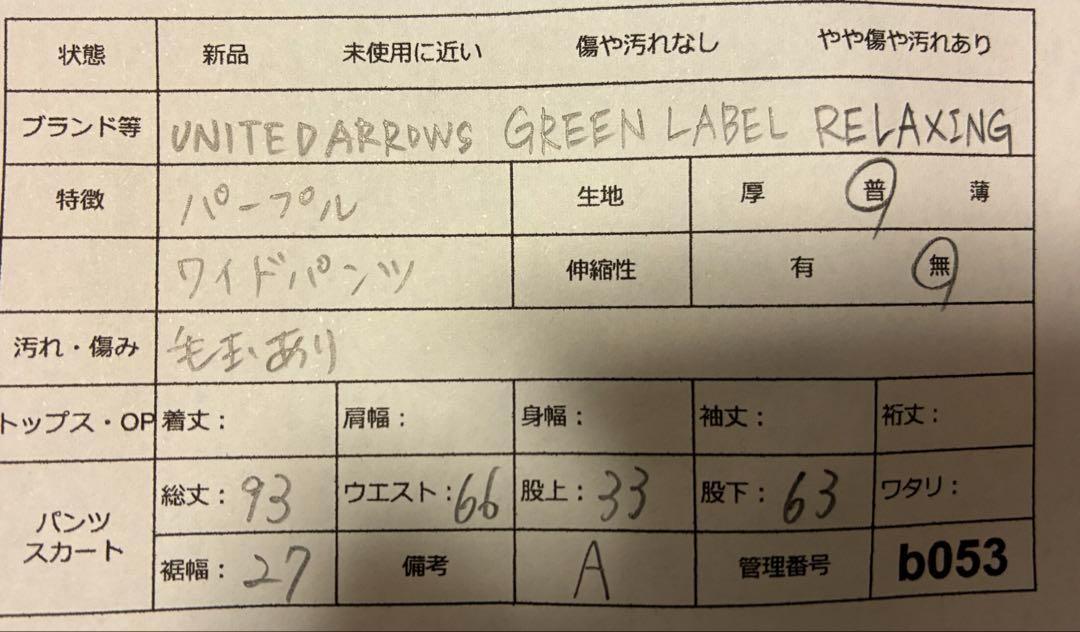 状態 新品 未使用に近い 傷や汚れなし やや傷や汚れあり
ブランド等 UNITED ARROWS GREEN LABEL RELAXING
特徴 パープル 生地 厚 普 薄
ワイドパンツ 伸縮性 有 無
汚れ・傷み 毛玉あり
トップス・OP 着丈: 肩幅: 身幅: 袖丈: 裄丈:
パンツ
スカート
総丈:93 ウエスト:66 股上:33 股下:63 ワタリ:
裾幅:27 備考 A 管理番号 b053